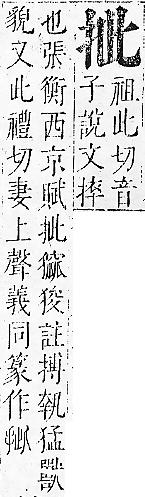 㧗
祖此切音
子說文捽
也張衡西京賦㧗㺄狻註搏執猛獸
貌又此禮切妻上聲義同篆作